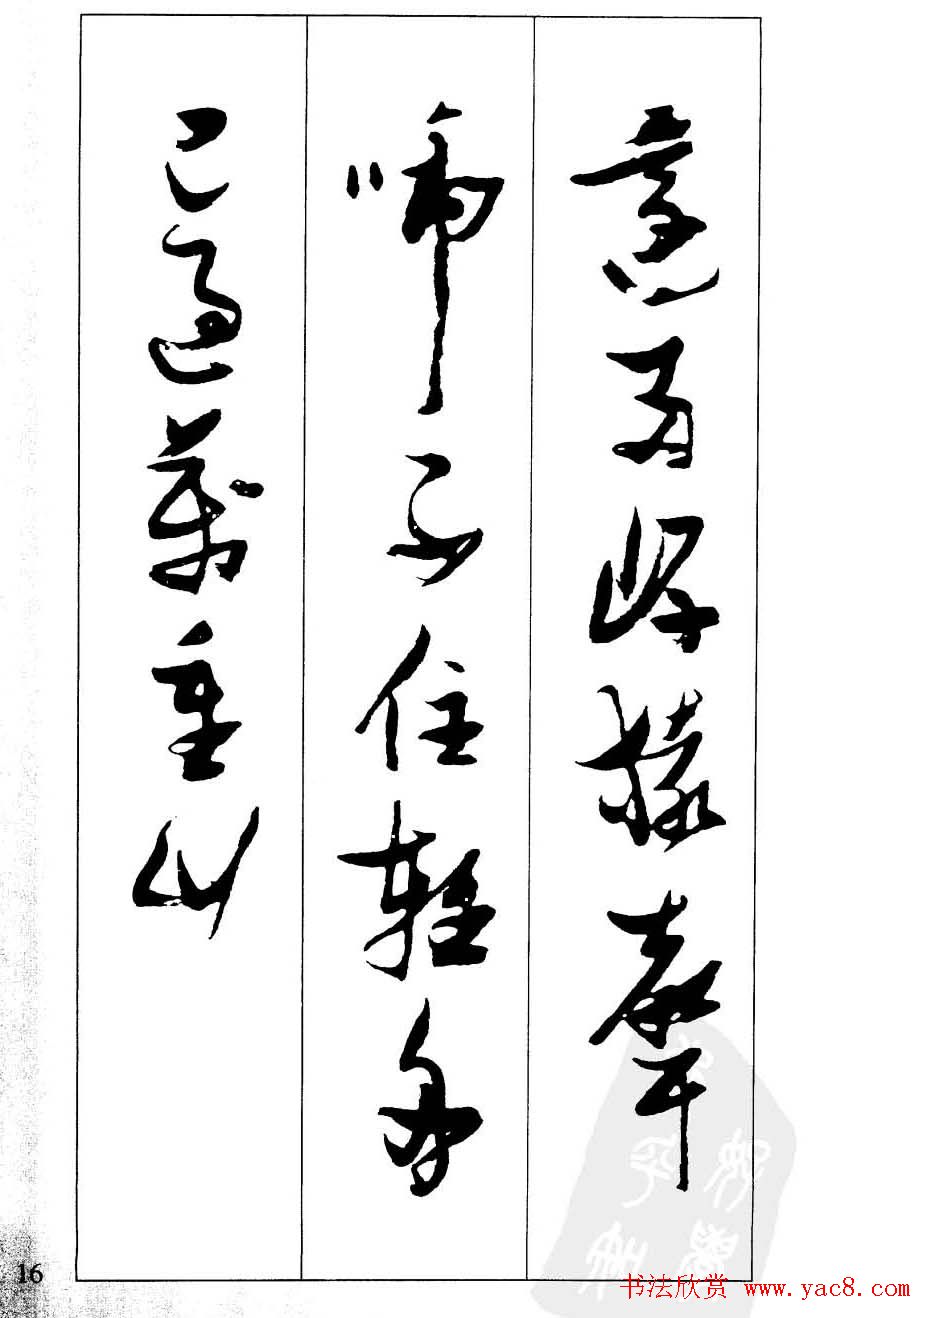 還兩岸猿聲
啼不住輕舟
已過萬重山
16
书法欣赏 www.yac8.com